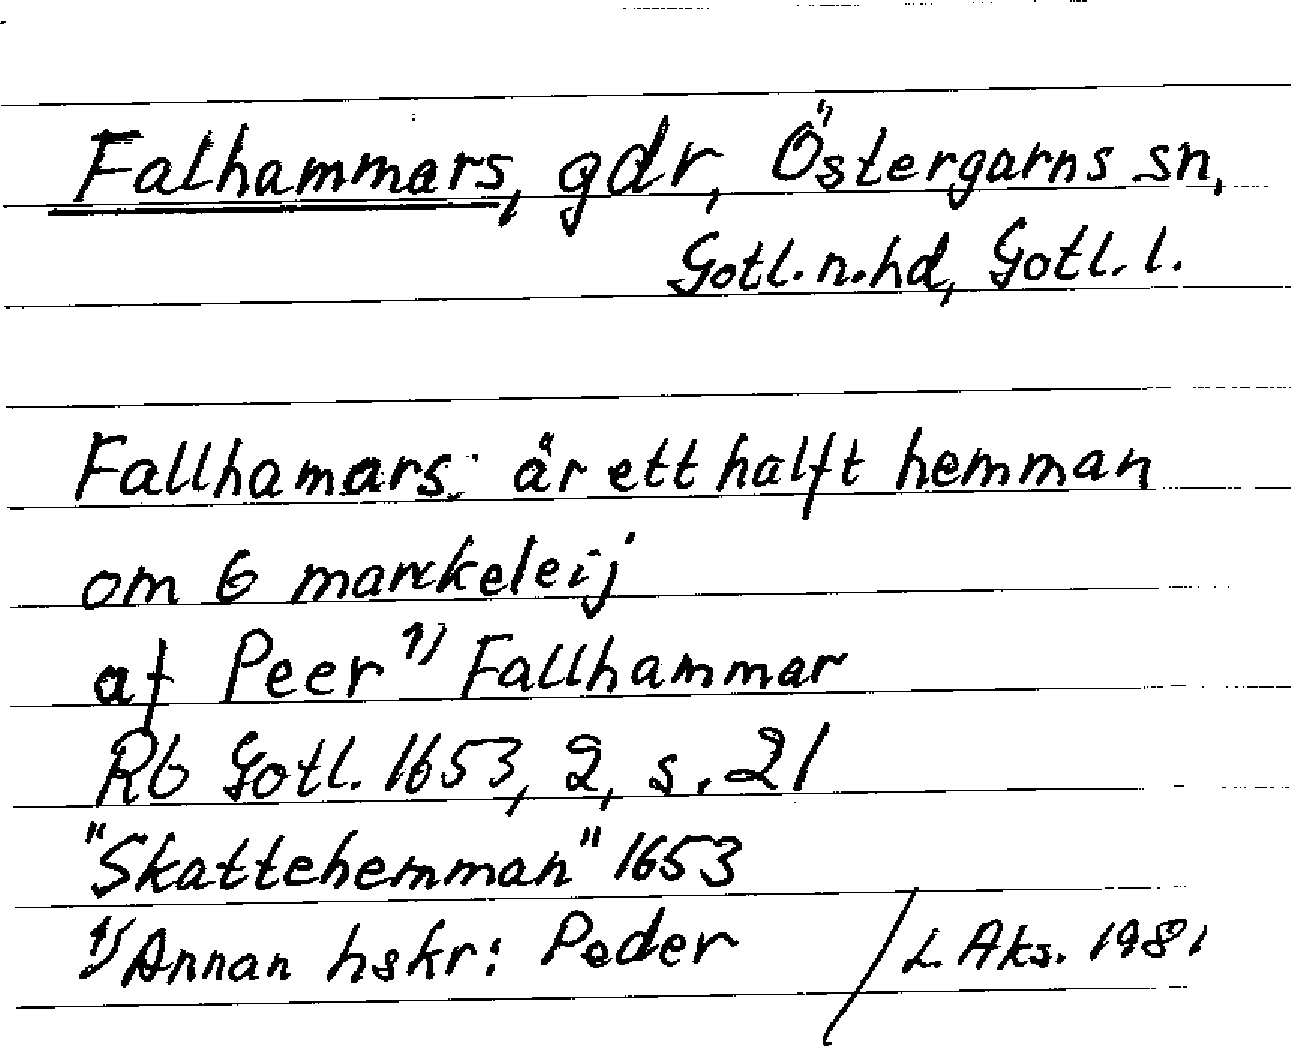 Falhammars, gdr, Östergarns sn,
Gotl. n. hd, Gotl. l.
Fallhamars: är ett halft hemman
om 6 marckeleij
af Peer 1) Fallhammar
Rb Gotl. 1653, 2, s. 21
"Skattehemman" 1653
1) Annan hskr: Peder / L. Aks. 1981